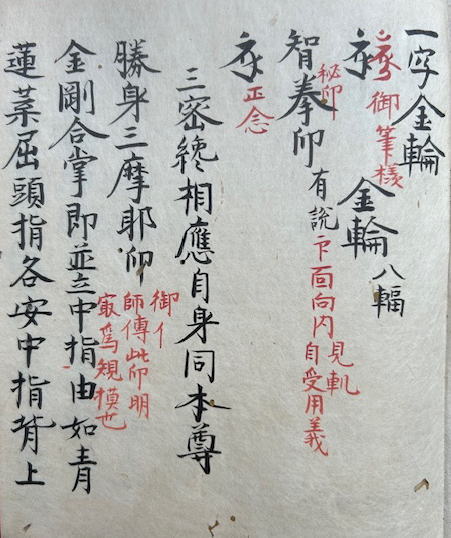 一字金輪
御筆樣 金輪 八輻
智拳印 秘印 有說 面向内 見軌 自受用義
正念
三密纔相應自身同本尊
勝身三摩耶印 御イ
師傳此印明
㝡爲規模也
金剛合掌即並立中指由如青
蓮葉屈頭指各安中指背上